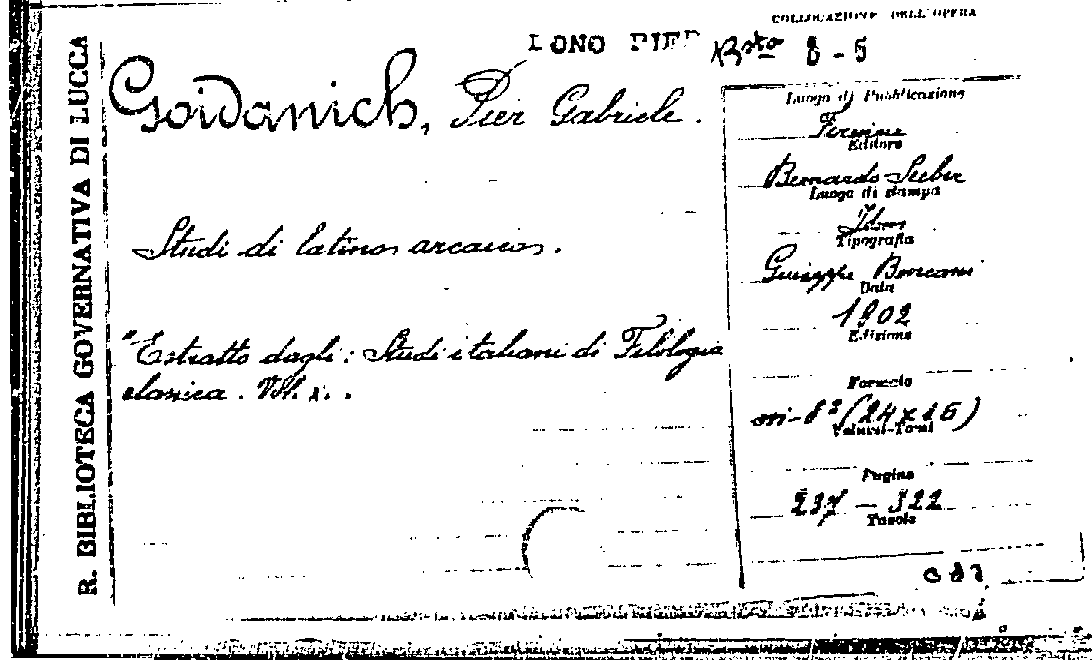 COLLOCAZIONE DELL'OPERA
DONO PIER
Bsta 8-5
R. BIBLIOTECA GOVERNATIVA DI LUCCA
Goidanich, Pier Gabriele.
Studi di latino arcaico.
"Estratto dagli: Studi italiani di Filologia
classica. Vol. X.
Luogo di Pubblicazione
Firenze
Editore
Bernardo Seeber
Luogo di stampa
Idem
Tipografia
Giuseppe
Data
1902
Edizione
Formato
in-8° (24x16)
Volumi-Tomi
Pagine
237 - 322
Tavole